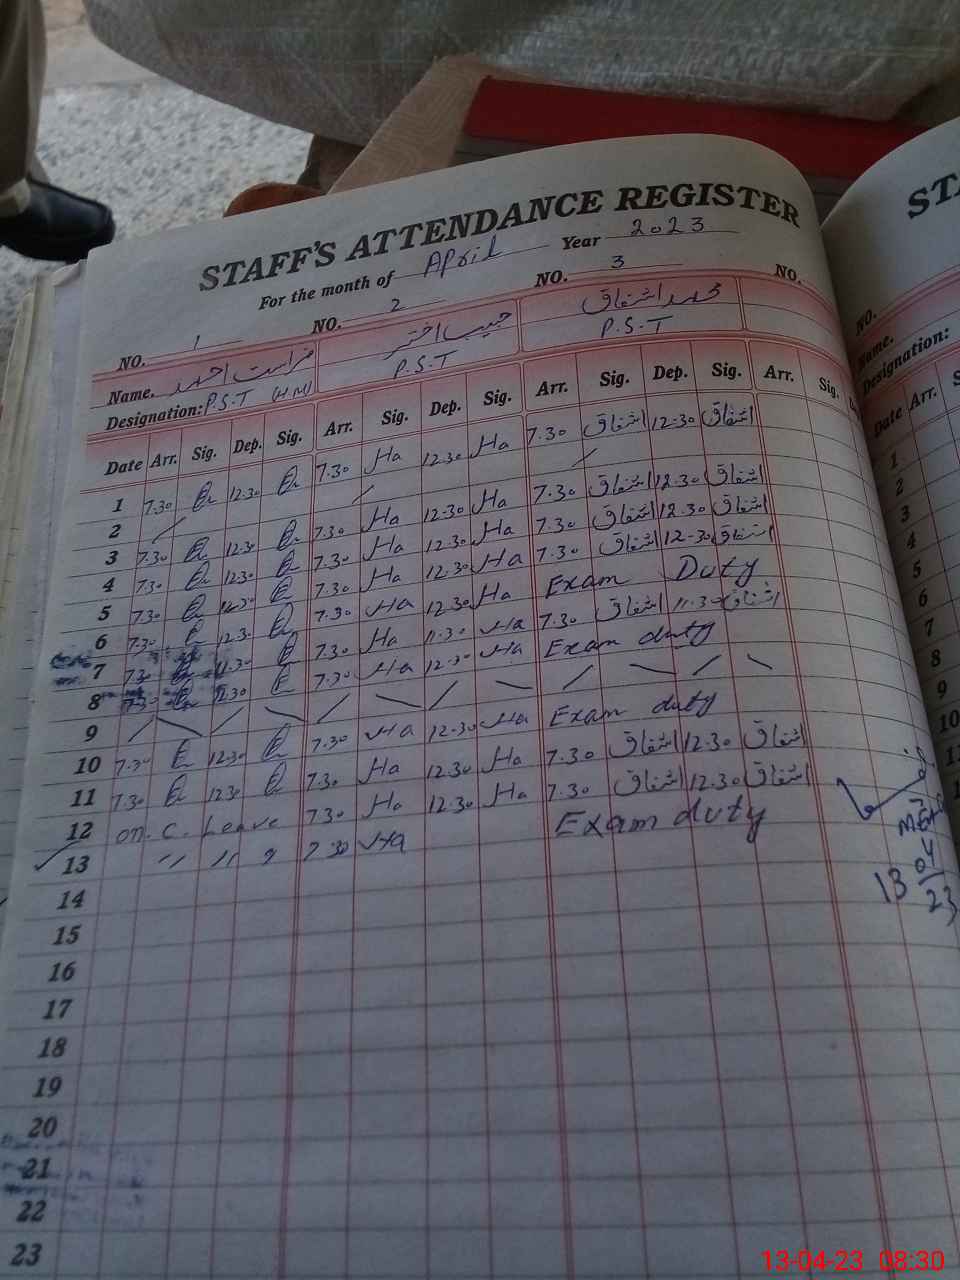 STAFF'S ATTENDANCE REGISTER
For the month of April Year 2023
NO. 1 NO. 2 NO. 3 NO.
Name. فراست احمد حبیب اختر محمد اشفاق
Designation: P.S.T (H.M) P.S.T P.S.T
Date Arr. Sig. Dep. Sig. Arr. Sig. Dep. Sig. Arr. Sig. Dep. Sig. Arr. Sig.
1 7.30 12.30 7.30 Ha 12.30 Ha 7.30 اشفاق 12.30 اشفاق
2
3 7.30 12.30 7.30 Ha 12.30 Ha 7.30 اشفاق 12.30 اشفاق
4 7.30 12.30 7.30 Ha 12.30 Ha 7.30 اشفاق 12.30 اشفاق
5 7.30 12.30 7.30 Ha 12.30 Ha 7.30 اشفاق 12.30 اشفاق
6 7.30 12.30 7.30 Ha 12.30 Ha Exam Duty
7 7.30 11.30 7.30 Ha 11.30 Ha 7.30 اشفاق 11.30 اشفاق
8 7.30 12.30 7.30 Ha 12.30 Ha Exam duty
9
10 7.30 12.30 7.30 Ha 12.30 Ha Exam duty
11 7.30 12.30 7.30 Ha 12.30 Ha 7.30 اشفاق 12.30 اشفاق
12 on. C. Leave 7.30 Ha 12.30 Ha 7.30 اشفاق 12.30 اشفاق
13 " " " 7 30 Ha Exam duty
14
15
16
17
18
19
20
21
22
23
STA
NO.
Name.
Designation:
Date Arr. S
1
2
3
4
5
6
7
8
9
10
13 04
23
13-04-23 08:30